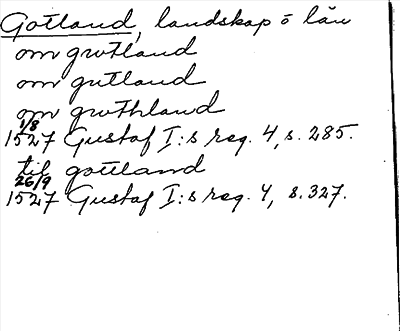 Gotland, landskap o län
om grotland
om gutland
om grothland
1/8
1527 Gustaf I:s reg. 4, s. 285.
til gottland
26/9
1527 Gustaf I:s reg. 4, s. 327.